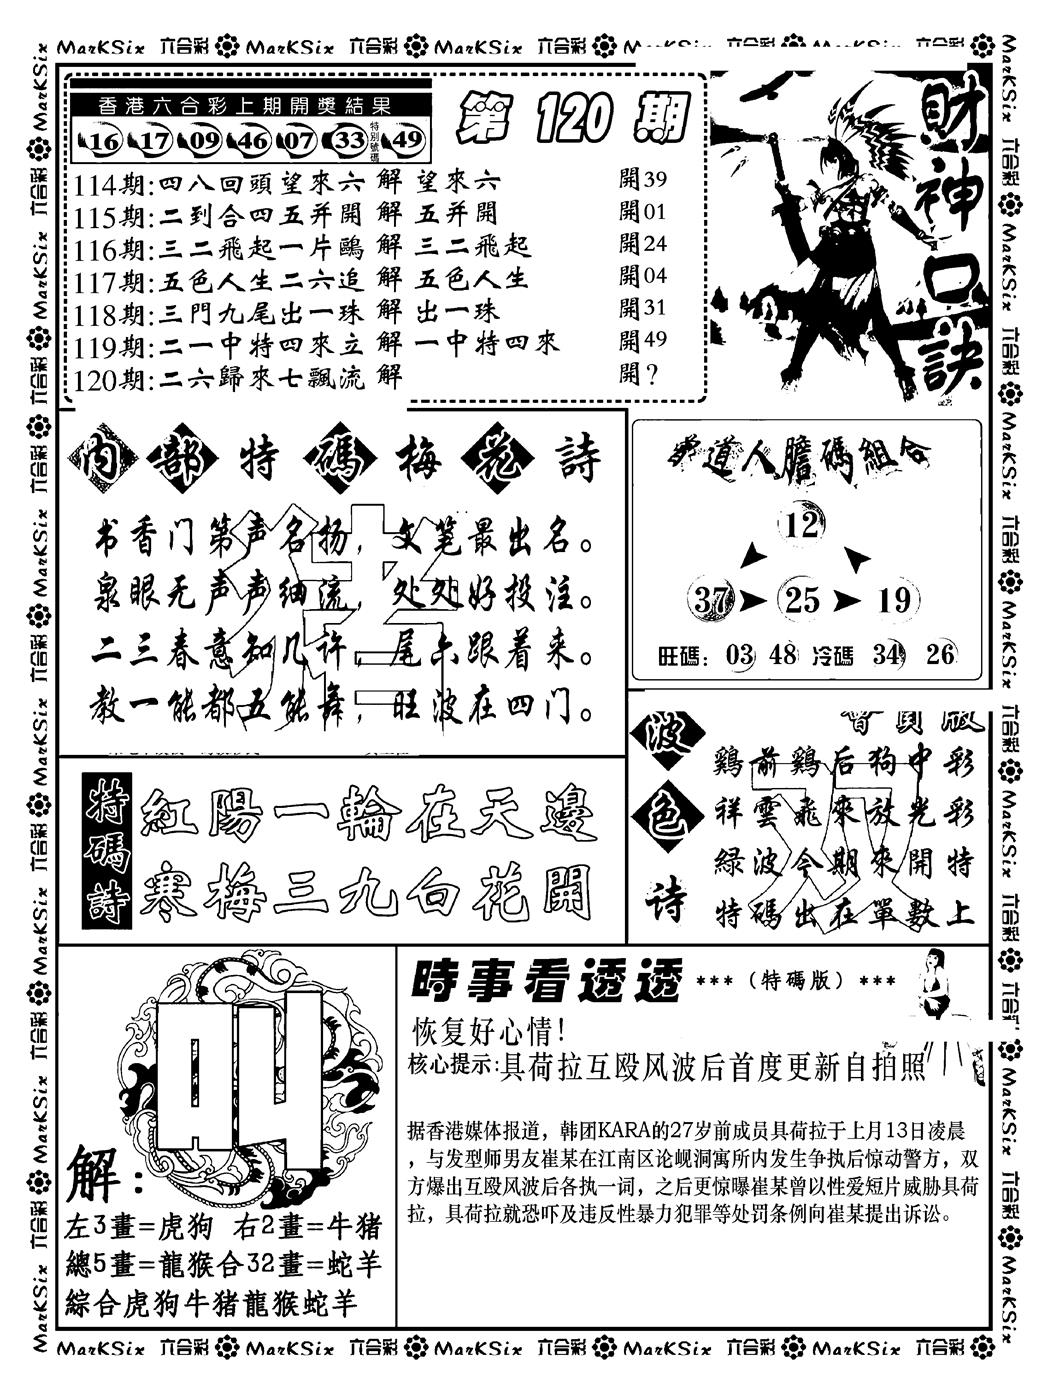 MarKSix 六合彩 MarKSix 六合彩 MarKSix 六合彩 MarKSix 六合彩 MarKSix 六合彩
香港六合彩上期開獎結果
16 17 09 46 07 33 特別號碼 49
第 120 期
財神口訣
114期:四八回頭望來六 解 望來六 開39
115期:二到合四五并開 解 五并開 開01
116期:三二飛起一片鷗 解 三二飛起 開24
117期:五色人生二六追 解 五色人生 開04
118期:三門九尾出一珠 解 出一珠 開31
119期:二一中特四來立 解 一中特四來 開49
120期:二六歸來七飄流 解 開?
內部特碼梅花詩
猪
书香门第声名扬，文笔最出名。
泉眼无声声细流，处处好投注。
二三春意知几许，尾六跟着来。
教一能都五能舞，旺波在四门。
道人膽碼組合
12
37 25 19
旺碼: 03 48 冷碼 34 26
特碼詩
紅陽一輪在天邊
寒梅三九白花開
波色诗
會員版
双
鷄前鷄后狗中彩
祥雲飛來放光彩
綠波今期來開特
特碼出在單數上
叫
解:
左3畫=虎狗 右2畫=牛猪
總5畫=龍猴合32畫=蛇羊
綜合虎狗牛猪龍猴蛇羊
時事看透透 ***（特碼版）***
恢复好心情!
核心提示:具荷拉互殴风波后首度更新自拍照
据香港媒体报道，韩团KARA的27岁前成员具荷拉于上月13日凌晨
，与发型师男友崔某在江南区论岘洞寓所内发生争执后惊动警方，双
方爆出互殴风波后各执一词，之后更惊曝崔某曾以性爱短片威胁具荷
拉，具荷拉就恐吓及违反性暴力犯罪等处罚条例向崔某提出诉讼。
MarKSix 六合彩 MarKSix 六合彩 MarKSix 六合彩 MarKSix 六合彩 MarKSix 六合彩